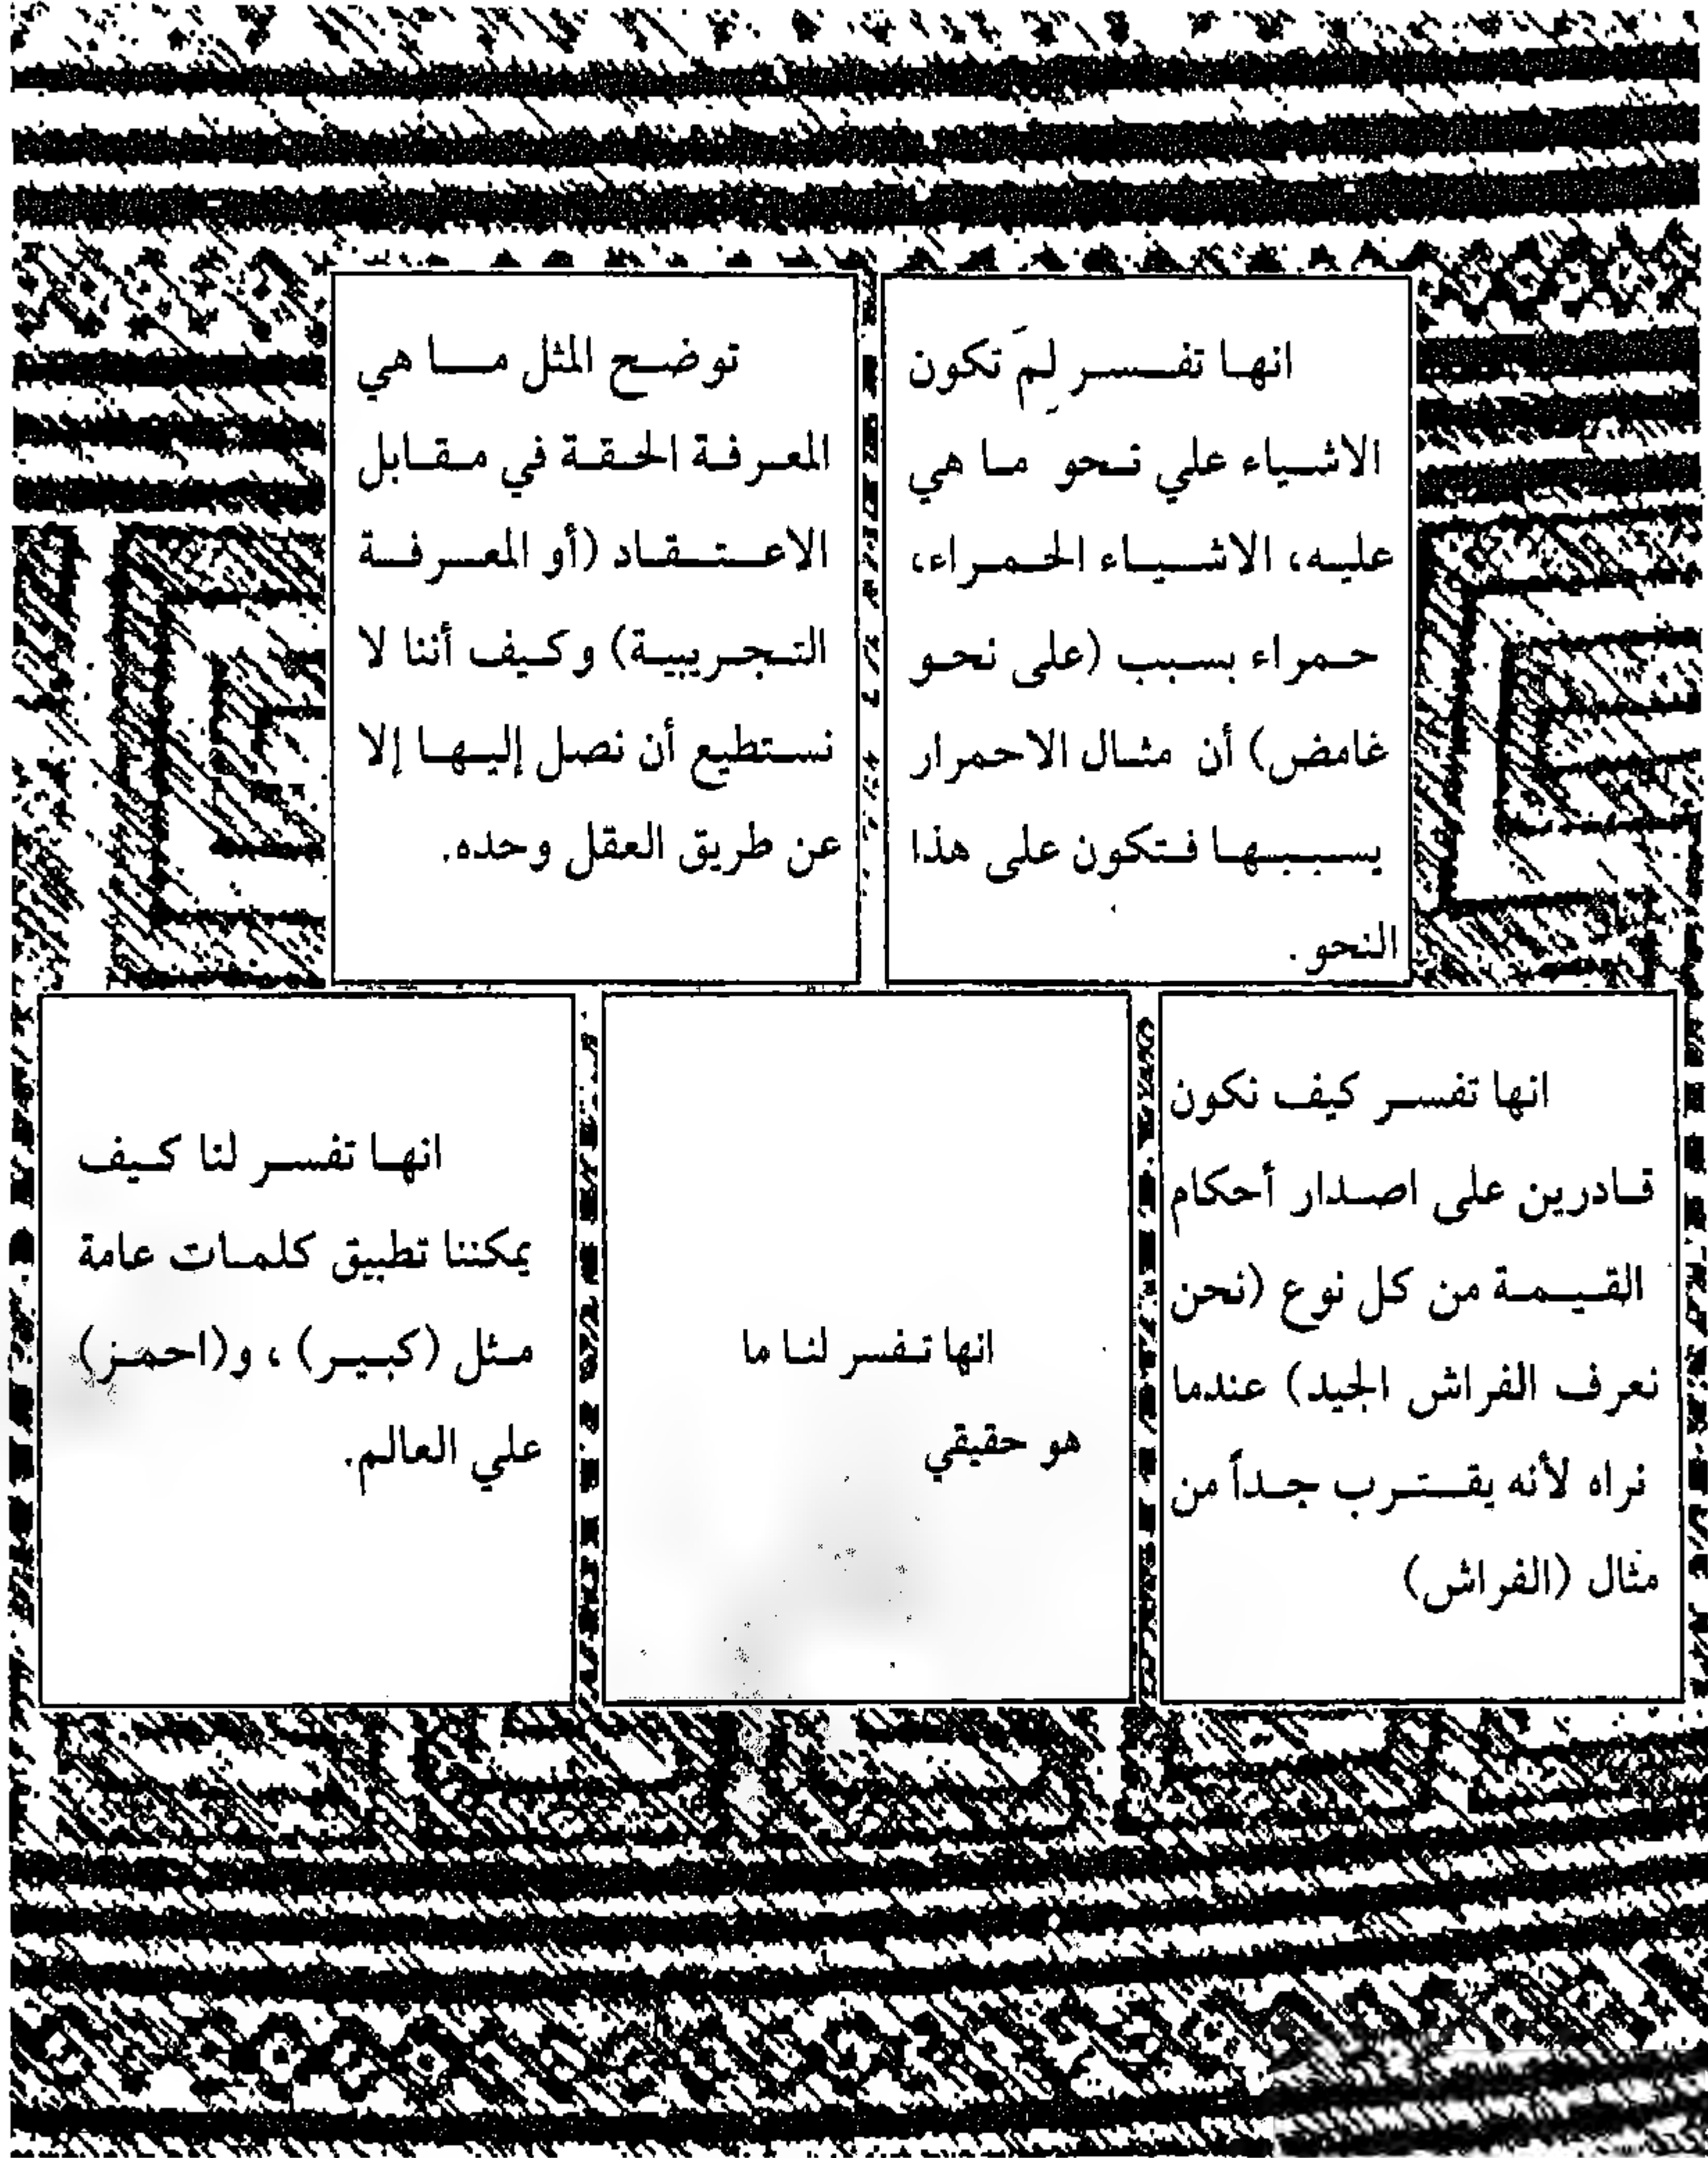 انها تفسر لِمَ تكون
الاشياء علي نحو ما هي
عليه، الاشياء الحمراء،
حمراء بسبب (على نحو
غامض) أن مثال الاحمرار
يسببها فتكون على هذا
النحو.
توضح المثل ما هي
المعرفة الحقة في مقابل
الاعتقاد (أو المعرفة
التجريبية) وكيف أننا لا
نستطيع أن نصل إليها إلا
عن طريق العقل وحده.
انها تفسر كيف نكون
قادرين على اصدار أحكام
القيمة من كل نوع (نحن
نعرف الفراش الجيد) عندما
نراه لأنه يقترب جداً من
مثال (الفراش)
انها تفسر لنا ما
هو حقيقي
انها تفسر لنا كيف
يمكننا تطبيق كلمات عامة
مثل (كبير)، و(احمز)
علي العالم.